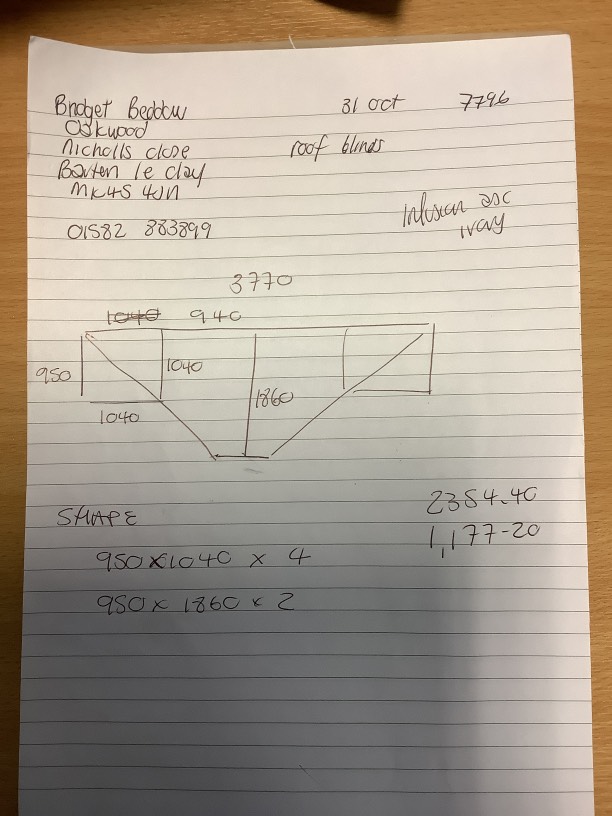 Bridget Beddow 31 Oct 7796
Oakwood
Nicholls close roof blinds
Barten le clay
MK45 4JN
Infusion asc
ivory
01582 883899
3770
1040 940
950 1040
1860
1040
SHAPE
2354.40
1,177-20
950x1040 x 4
980 x 1860 x 2